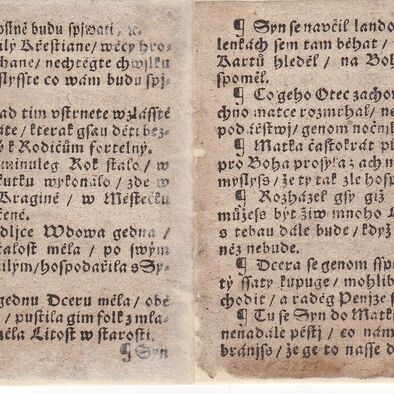 oſlně budu ſpjwati / ꝛc.
ilý Křeſtiane / wěcy hro-
hane / nechtěgte chwjlku
ſlyſſte co wám budu ſpj-
ad tim vſtrnete wzláſſtě
áte / kterak gſau děti bez-
ý k Rodičům fortelny.
minuleg Rok ſtalo / w
kutku wykonálo / zde w
Kragině / w Měſtečku
čené.
dljce Wdowa gedna /
aloſt měla / po ſwým
ilým / hoſpodařila s Sy-
gednu Dceru měla / obě
/ puſtila gim folk z mla-
zěla Litoſt w ſtaroſti.
¶ Syn
¶ Syn ſe navčil lando
lenkách ſem tam běhat /
Kartů hleděl / na Boh
ſpoměl.
¶ Co geho Otec zachow
chno matce rozmrhal / ne
pod těſtwj / genom nočnj
¶ Matka čaſtokrát pl
pro Boha proſyla z ach n
myſlyſs / že ty tak zle hoſp
¶ Rozházel gſy giž
můžeſs být žiw mnoho L
s tebau dále bude / když
něž nebude.
¶ Dcera ſe genom ſſp
tý ſſaty kupuge / mohlib
chodit / a raděg Penjze ſ
¶ Tu ſe Syn do Matk
nenadale pěſtj / co nám
bránjſs / že ge to naſſe d